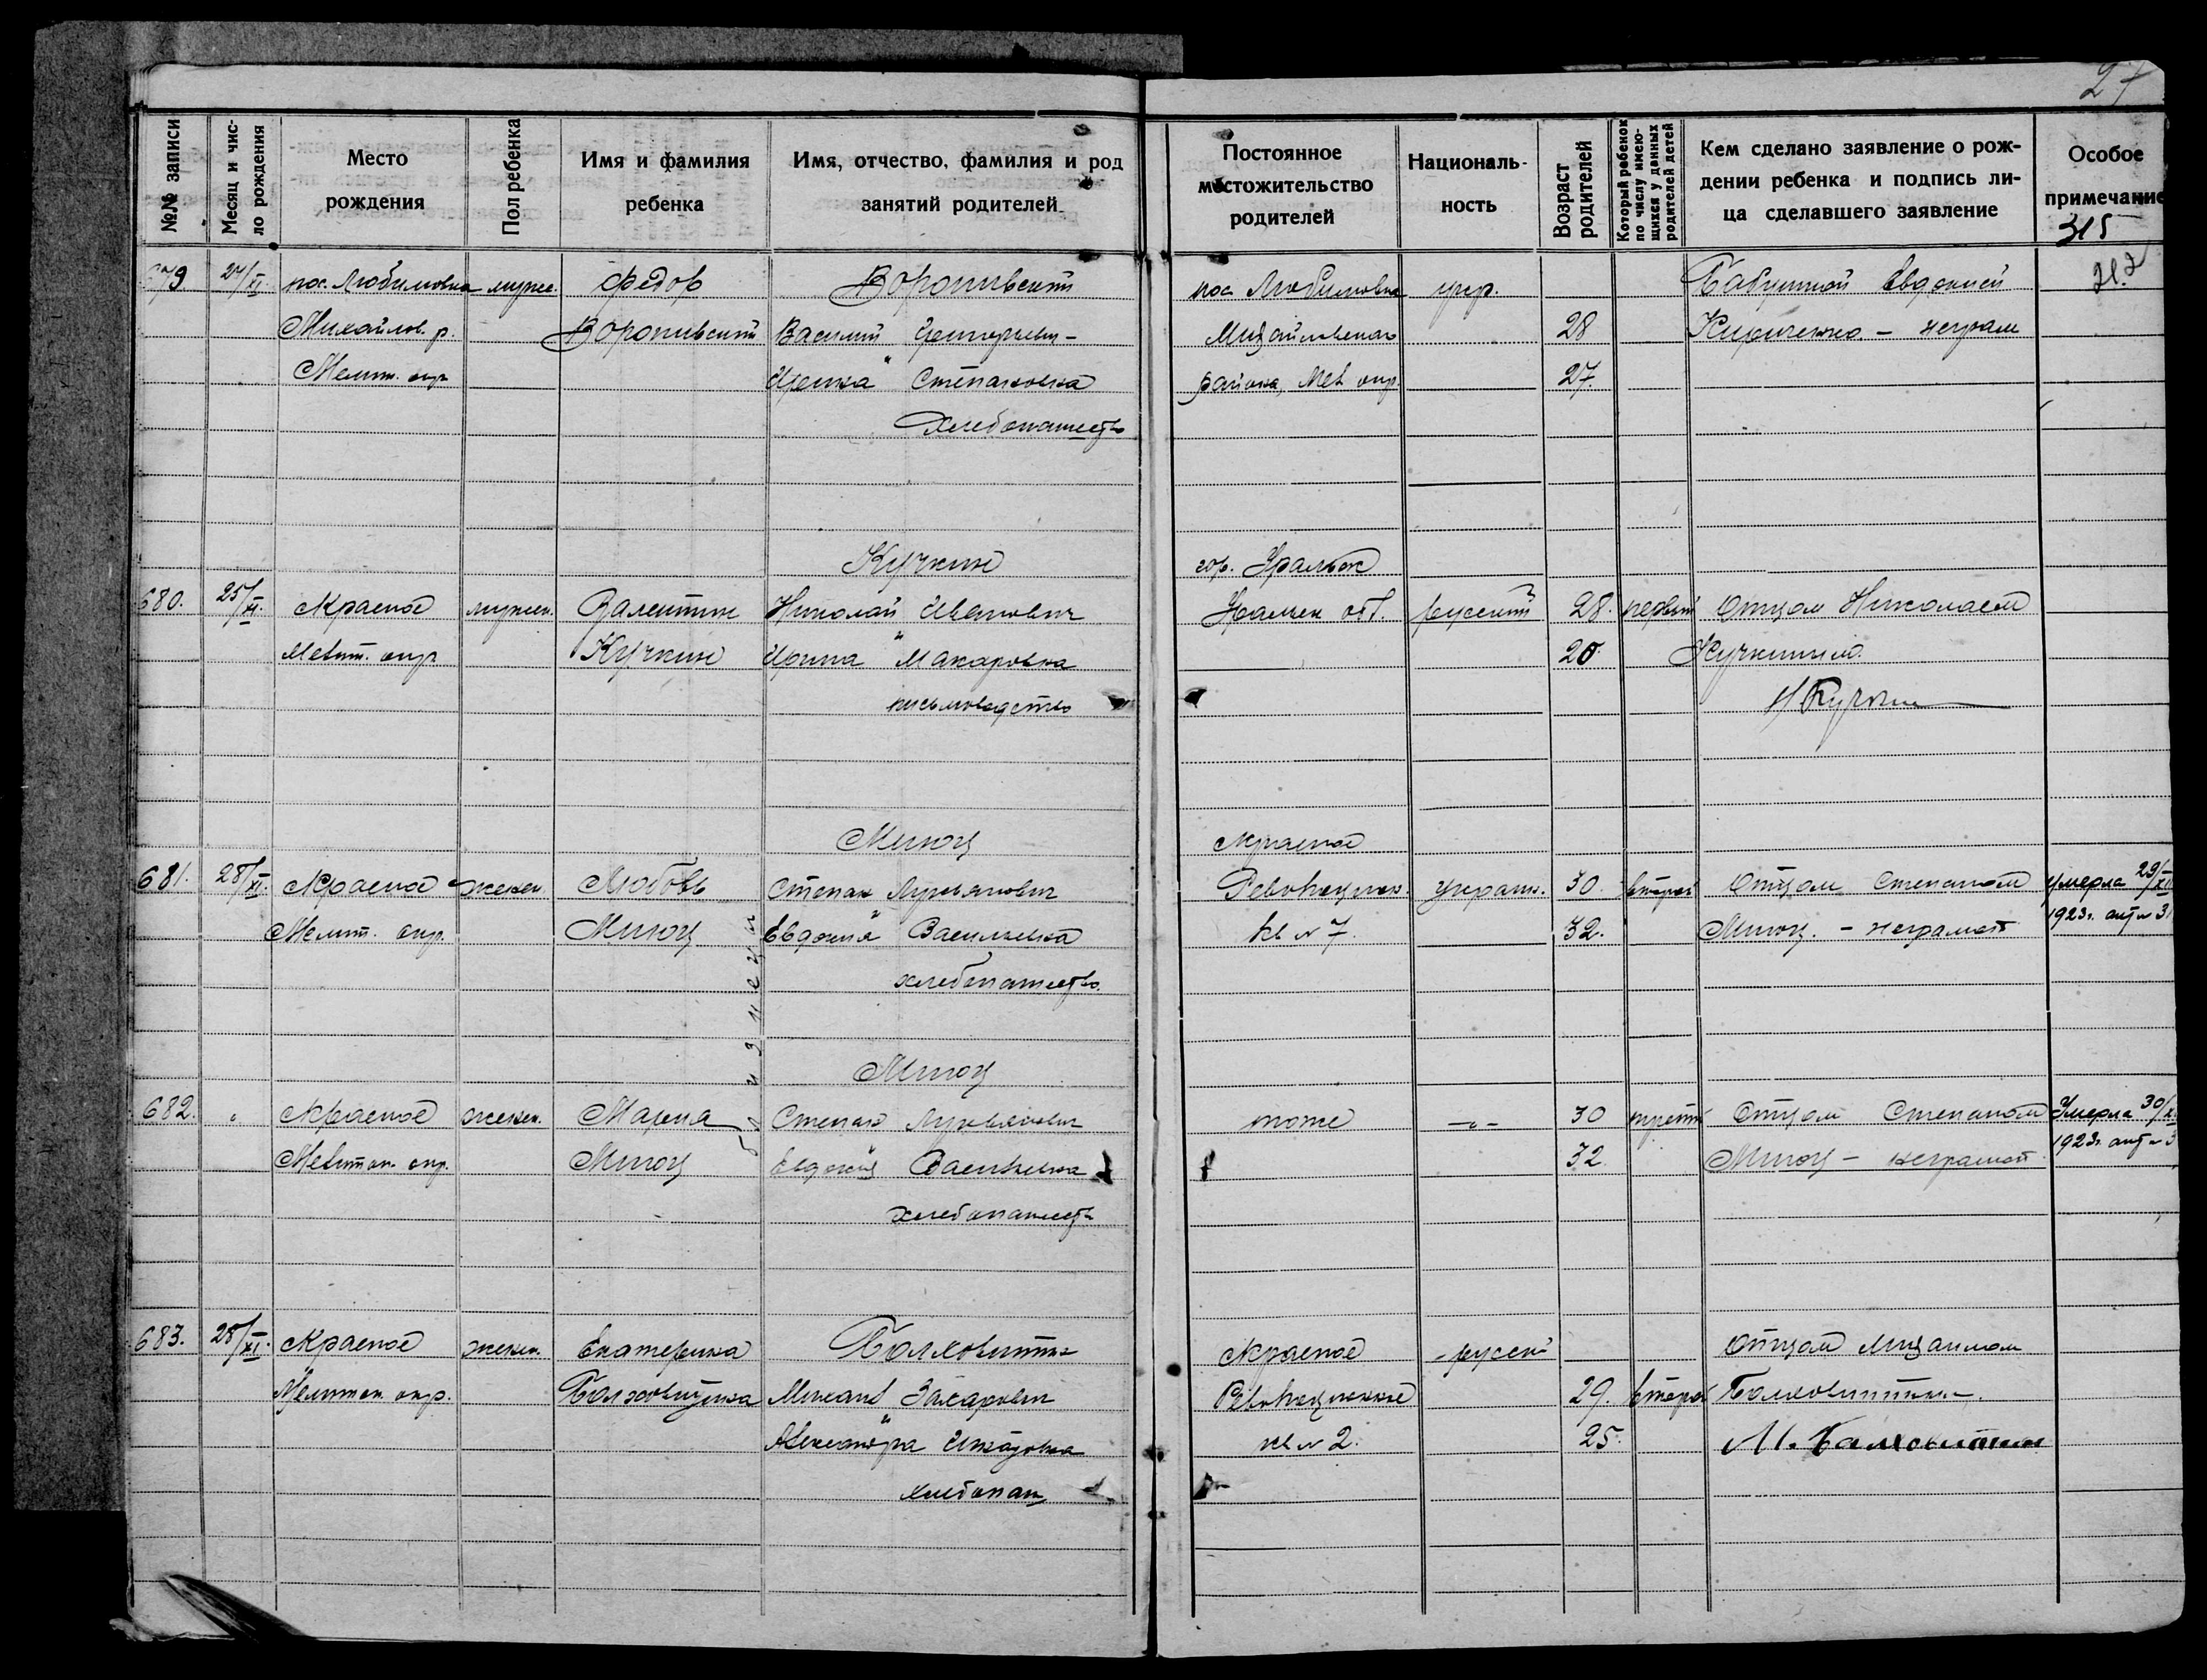 27
№№ записи
Месяц и чис-
ло рождения
Место
рождения
Пол ребенка
Имя и фамилия
ребенка
Имя, отчество, фамилия и род
занятий родителей
Постоянное
местожительство
родителей
Националь-
ность
Возраст
родителей
Который ребенок
по числу имею-
щихся у данных
родителей детей
Кем сделано заявление о рож-
дении ребенка и подпись ли-
ца сделавшего заявление
Особое
примечание
315
679 27/XI. пос. Любимовка мужс. Федор пос Любимовка укр. Бабушкой Евдокией
Михайлов. р. Василий 28 Кириченко - неграм
Мелит. окр Степановна района, Мел окр. 27.
хлебопашеств
Кучкин гор. Уральск
680. 25/XI. Красное мужск. Валентин Николай Иванович обл. русский 28. первый Отцом Николаем
Мелит. окр Кучкин Ирина " Макаровна 20. Кучкиным.
письмоводство Н Кучкин
Мигоц Красное
681. 28/XI. Красное женск. Любовь Степан Лукьянович Революцион. украин. 30. второй Отцом Степаном Умерла 29/XII
Мелит. окр. Мигоц Евдокия " Васильевна кв № 7. 32. Мигоц. - неграмот 1923г. акт № 3
хлебопашество.
близнецы
Мигоц
682. " Красное женск. Мария Степан Лукьянович тоже -"- 30 третий Отцом Степаном Умерла 30/X
Мелитоп. окр. Мигоц Евдокия " Васильевна 32. Мигоц - неграмот 1923г. акт № 3
хлебопашеств
683. 28/XI. Красное женск. Екатерина Болховитин Красное русский Отцом Михаилом
Мелитоп. окр. Болховитина Михаил Захарович Революционное 29. второй Болховитиным.
Александра " кв № 2. 25. М. Балховитин
хлебопаш